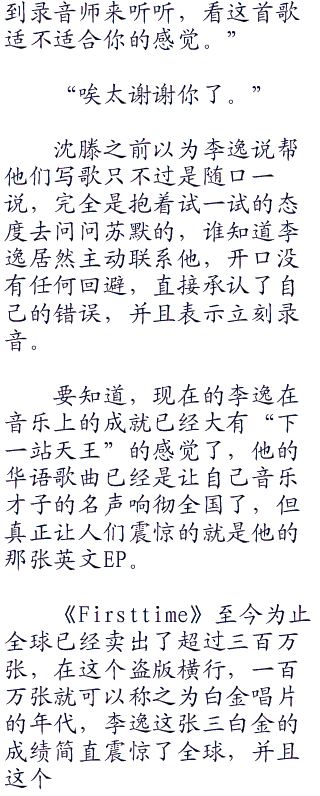 到录音师来听听，看这首歌
适不适合你的感觉。”
“唉太谢谢你了。”
沈滕之前以为李逸说帮
他们写歌只不过是随口一
说，完全是抱着试一试的态
度去问问苏默的，谁知道李
逸居然主动联系他，开口没
有任何回避，直接承认了自
己的错误，并且表示立刻录
音。
要知道，现在的李逸在
音乐上的成就已经大有“下
一站天王”的感觉了，他的
华语歌曲已经是让自己音乐
才子的名声响彻全国了，但
真正让人们震惊的就是他的
那张英文EP。
《Firsttime》至今为止
全球已经卖出了超过三百万
张，在这个盗版横行，一百
万张就可以称之为白金唱片
的年代，李逸这张三白金的
成绩简直震惊了全球，并且
这个